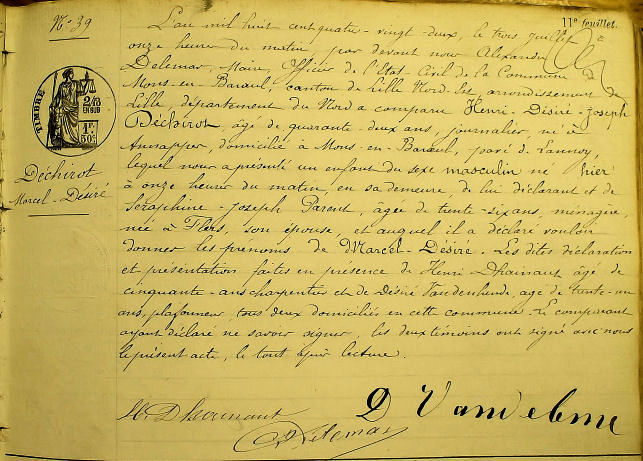 N° 39
11e feuillet.
TIMBRE
2/10
EN SUS
1F
50c
Déchirot
Marcel - Désiré
L'an mil huit cent quatre-vingt-deux, le trois juillet à
onze heures du matin, par devant nous Alexandre
Delemar, Maire, Officier de l'Etat-Civil de la Commune de
Mons-en-Barœul, canton de Lille Nord-Est, arrondissement de
Lille, département du Nord a comparu Henri-Désiré-Joseph
Déchirot, âgé de quarante-deux ans, journalier, né à
Annappes, domicilié à Mons-en-Barœul, pavé de Lannoy,
lequel nous a présenté un enfant du sexe masculin né hier
à onze heures du matin, en sa demeure, de lui déclarant et de
Séraphine-Joseph Parent, âgée de trente-six ans, ménagère,
née à Flers, son épouse, et auquel il a déclaré vouloir
donner les prénoms de Marcel-Désiré. Les dites déclaration
et présentation faites en présence de Henri Dhainaut âgé de
cinquante-ans charpentier et de Désiré Vandenhende, âgé de trente-un
ans, plafonneur tous deux domiciliés en cette commune. Le comparant
ayant déclaré ne savoir signer, les deux témoins ont signé avec nous
le présent acte, le tout après lecture.
H. Dhainaut
D
Delemar